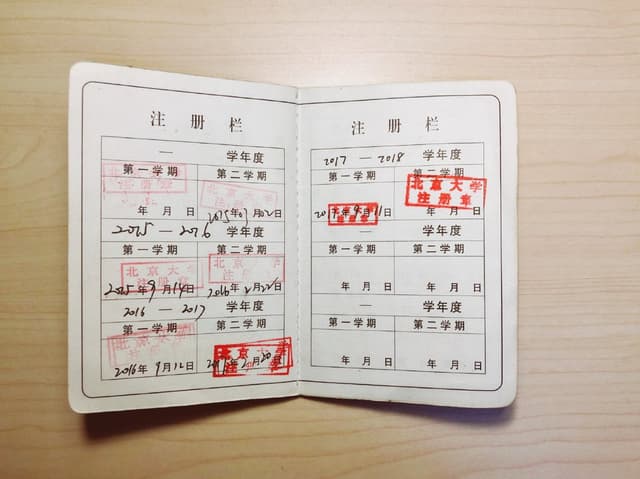 注册栏
— 学年度
第一学期 第二学期
年 月 日 2015年03月02日
2015 — 2016 学年度
第一学期 第二学期
北京大学
注册章
2015年9月14日 2016年2月22日
2016 — 2017 学年度
第一学期 第二学期
北京大学
注册章
北京大学
注册
2016年9月12日
注册栏
2017 — 2018 学年度
第一学期 第二学期
北京大学
注册章
2017年9月11日 年 月 日
— 学年度
第一学期 第二学期
年 月 日 年 月 日
— 学年度
第一学期 第二学期
年 月 日 年 月 日